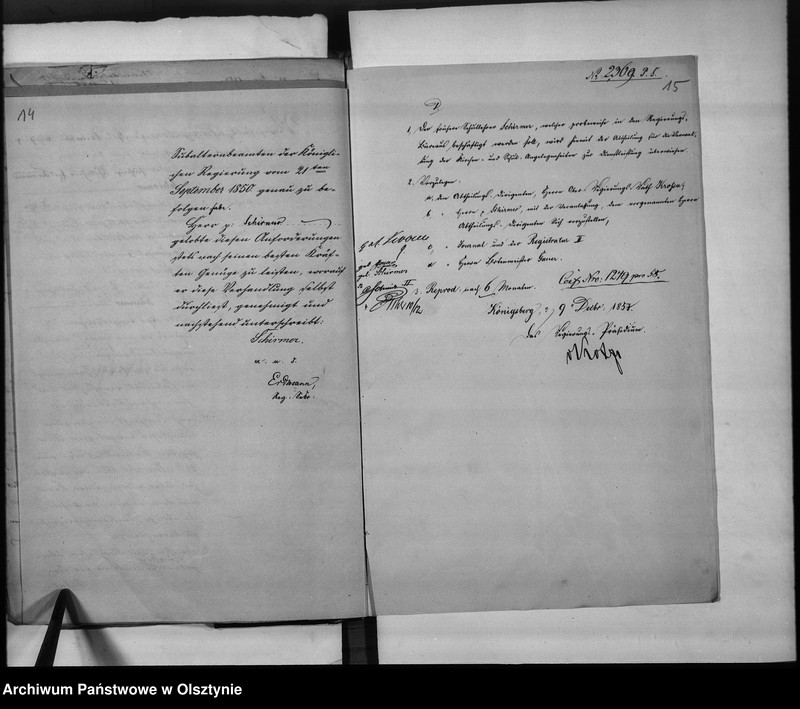 14
Subalternbeamten der Königli-
chen Regierung vom 21ten
September 1850 genau zu be-
folgen habe.
Herr p. Schirmer
gelobte diesen Anforderungen
stets nach seinen besten Kräf-
ten Genüge zu leisten, worauf
er diese Verhandlung selbst
durchliest, genehmigt und
nachstehend unterschreibt:
Schirmer.
a. u. s.
Erdmann,
Reg. Sekr.
No 2369 P. S.
15
1. Der frühere Schullehrer Schirmer, welcher probeweise in den Regierungs-
Büreaus beschäftigt werden soll, wird hiemit der Abtheilung für die Verwal-
tung der Kirchen- und Schul-Angelegenheiten zur Dienstleistung überwiesen.
2. Vorzulegen
a, dem Abtheilungs-Dirigenten, Herrn Ober-Regierungs-Rath
b, Herrn p Schirmer, mit der Veranlassung, dem vorgenannten Herrn
Abtheilungs-Dirigenten sich vorzustellen,
c, Journal und der Registratur II
d, Herrn Botenmeister
gel. Schirmer
3. Reprod. nach 6 Monaten.
Conf. Nro: 1249 pro 58.
Königsberg, 9 Debr. 185
Das Regierungs-Präsidium.
Archiwum Państwowe w Olsztynie